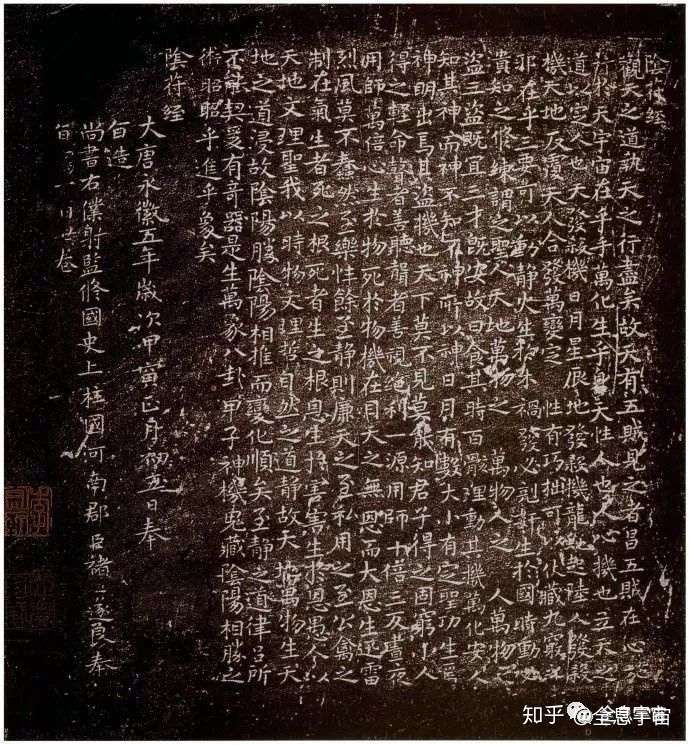 陰符經
觀天之道執天之行盡矣故天有五賊見之者昌五賊在心施
行於天宇宙在乎手萬化生乎身天性人也人心機也立天之
道以定人也天發殺機日月星辰地發殺機龍蛇起陸人發殺
機天地反覆天人合發萬變之性有巧拙可以伏藏九竅之
邪在乎三要可以動靜火生於木禍發必剋奸生於國時動必
貴知之修練謂之聖人天地萬物之萬物人之人萬物之
盜三盜既宜三才既安故曰食其時百骸理動其機萬化安人
知其神而神不知不神所以神日月有數大小有定聖功生焉
神明出焉其盜機也天下莫不見莫能知君子得之固窮小人
得之輕命瞽者善聽聾者善視絕利一源用師十倍三反晝夜
用師萬倍心生於物死於物機在目天之無恩而大恩生迅雷
烈風莫不蠢然至樂性餘至靜則廉天之至私用之至公禽之
制在氣生者死之根死者生之根恩生於害害生於恩愚人以
天地文理聖我以時物文理哲自然之道靜故天地萬物生天
地之道浸故陰陽勝陰陽相推而變化順矣至靜之道律呂所
不能契爰有奇器是生萬象八卦甲子神機鬼藏陰陽相勝之
術昭昭乎進乎象矣
陰符經
大唐永徽五年歲次甲寅正月初五日奉
旨造
尚書右僕射監修國史上柱國河南郡臣褚遂良奉
旨一日共卷
知乎 @全息宇宙